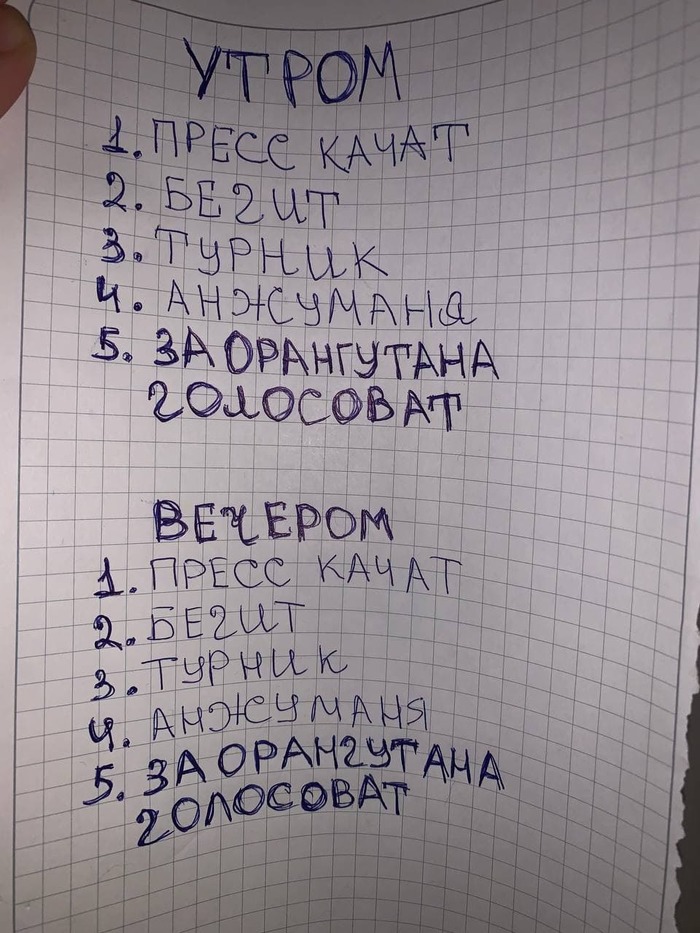 УТРОМ
1. ПРЕСС КАЧАТ
2. БЕГИТ
3. ТУРНИК
4. АНЖУМАНЯ
5. ЗА ОРАНГУТАНА
ГОЛОСОВАТ
ВЕЧЕРОМ
1. ПРЕСС КАЧАТ
2. БЕГИТ
3. ТУРНИК
4. АНЖУМАНЯ
5. ЗА ОРАНГУТАНА
ГОЛОСОВАТ